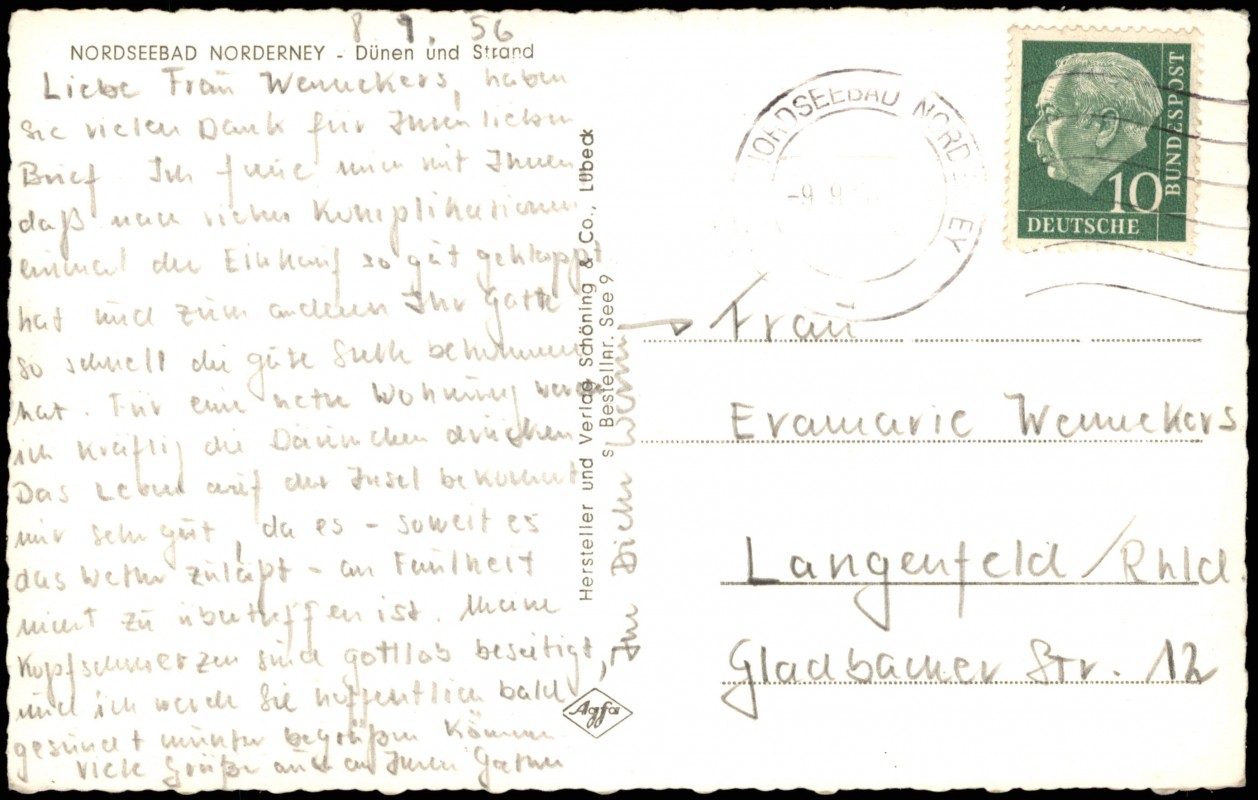 8. 9. 56
NORDSEEBAD NORDERNEY - Dünen und Strand
Liebe Frau Wennekers, haben
Sie vielen Dank für Ihren lieben
Brief. Ich freue mich mit Ihnen
daß nach vielen Komplikationen
einmal der Einkauf so gut geklappt
hat und zum anderen Ihr Gatte
so schnell die gute Stelle bekommen
hat. Für eine nette Wohnung werde
ich kräftig die Däumchen drücken
Das Leben auf der Insel bekommt
mir sehr gut, da es - soweit es
das Wetter zuläßt - an Faulheit
nicht zu übertreffen ist. Meine
Kopfschmerzen sind gottlob beseitigt,
und ich werde Sie hoffentlich bald
gesund + munter begrüßen können.
Viele Grüße auch an Ihren Gatten
Ihr
Hersteller und Verlag Schöning & Co., Lübeck
S Bestellnr. See 9
Agfa
NORDSEEBAD NORDERNEY
-9. 9.
10
DEUTSCHE
BUNDESPOST
Frau
Evamarie Wennekers
Langenfeld / Rhld.
Gladbacher Str. 12